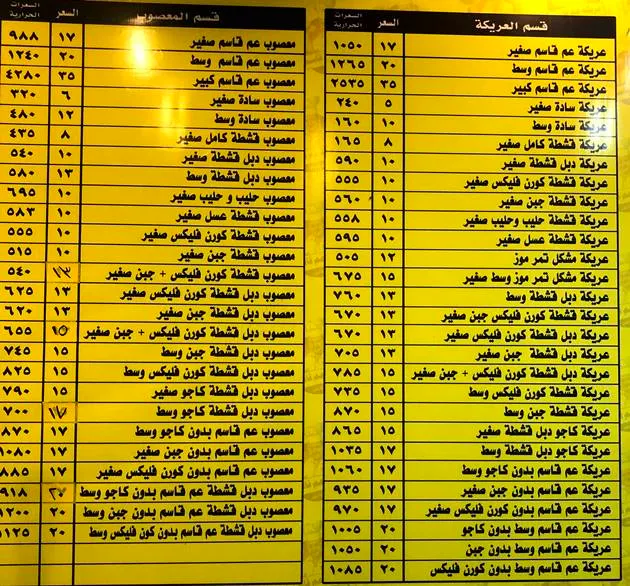 قسم العريكة السعر السعرات الحرارية
عريكة عم قاسم صغير ١٧ ١٠٥٠
عريكة عم قاسم وسط ٢٠ ١٢٦٥
عريكة عم قاسم كبير ٣٥ ٢٥٣٥
عريكة سادة صغير ٥ ٢٤٠
عريكة سادة وسط ١٠ ١٦٠
عريكة قشطة كامل صغير ٨ ١٦٥
عريكة دبل قشطة صغير ١٠ ٥٩٠
عريكة قشطة كورن فليكس صغير ١٠ ٥٥٥
عريكة قشطة جبن صغير ١٠ ٥٦٠
عريكة قشطة حليب وحليب صغير ١٠ ٥٥٨
عريكة قشطة عسل صغير ١٠ ٥٩٥
عريكة مشكل تمر موز ١٢ ٥٠٥
عريكة مشكل تمر موز وسط صغير ١٥ ٦٧٥
عريكة دبل قشطة وسط ١٣ ٧٦٠
عريكة قشطة كورن فليكس جبن صغير ١٣ ٦٧٠
عريكة دبل قشطة كورن فليكس صغير ١٣ ٦٧٠
عريكة دبل قشطة جبن صغير ١٣ ٧٠٥
عريكة دبل قشطة كورن فليكس + جبن صغير ١٥ ٧٨٥
عريكة قشطة كورن فليكس وسط ١٥ ٧٣٥
عريكة قشطة جبن وسط ١٥ ٨٧٠
عريكة كاجو دبل قشطة صغير ١٥ ٨٦٥
عريكة كاجو دبل قشطة وسط ١٧ ١٠٣٥
عريكة عم قاسم بدون كاجو وسط ١٧ ١٠٦٠
عريكة عم قاسم بدون جبن صغير ١٧ ٩٣٥
عريكة عم قاسم بدون كورن فليكس صغير ١٧ ٩٧٠
عريكة عم قاسم وسط بدون كاجو ٢٠ ١٠٠٥
عريكة عم قاسم وسط بدون جبن ٢٠ ١٠٥٠
عريكة عم قاسم وسط بدون كورن فليكس ٢٠ ١٠٨٥
قسم المعصوب السعر السعرات الحرارية
معصوب عم قاسم صغير ١٧ ٩٨٨
معصوب عم قاسم وسط ٢٠ ١٢٤٠
معصوب عم قاسم كبير ٣٥ ٤٢٨٠
معصوب سادة صغير ٦ ٣٢٠
معصوب سادة وسط ١٢ ٤٨٠
معصوب قشطة كامل صغير ٨ ٤٣٥
معصوب دبل قشطة صغير ١٠ ٥٤٠
معصوب دبل قشطة وسط ١٣ ٥٨٠
معصوب حليب و حليب صغير ١٠ ٦٩٥
معصوب قشطة عسل صغير ١٠ ٥٨٣
معصوب قشطة كورن فليكس صغير ١٠ ٥٥٥
معصوب قشطة جبن صغير ١٠ ٥١٥
معصوب قشطة كورن فليكس + جبن صغير ١٣ ٥٤٠
معصوب دبل قشطة كورن فليكس صغير ١٣ ٦٢٥
معصوب دبل قشطة جبن صغير ١٣ ٦٢٠
معصوب دبل قشطة كورن فليكس + جبن صغير ١٥ ٦٥٥
معصوب دبل قشطة جبن وسط ١٥ ٧٤٥
معصوب دبل قشطة كورن فليكس وسط ١٥ ٨٢٥
معصوب دبل قشطة كاجو صغير ١٥ ٧٩٠
معصوب دبل قشطة كاجو وسط ٧٠٠
معصوب عم قاسم بدون كاجو وسط ١٧ ٨٧٠
معصوب عم قاسم بدون جبن صغير ١٧ ١٠٨٠
معصوب عم قاسم بدون كورن فليكس صغير ١٧ ٨٨٥
معصوب دبل قشطة عم قاسم بدون كاجو وسط ٢٠ ٩١٨
معصوب دبل قشطة عم قاسم بدون جبن وسط ٢٠ ١٢٠٠
معصوب دبل قشطة عم قاسم بدون كورن فليكس وسط ٢٠ ١١٢٥